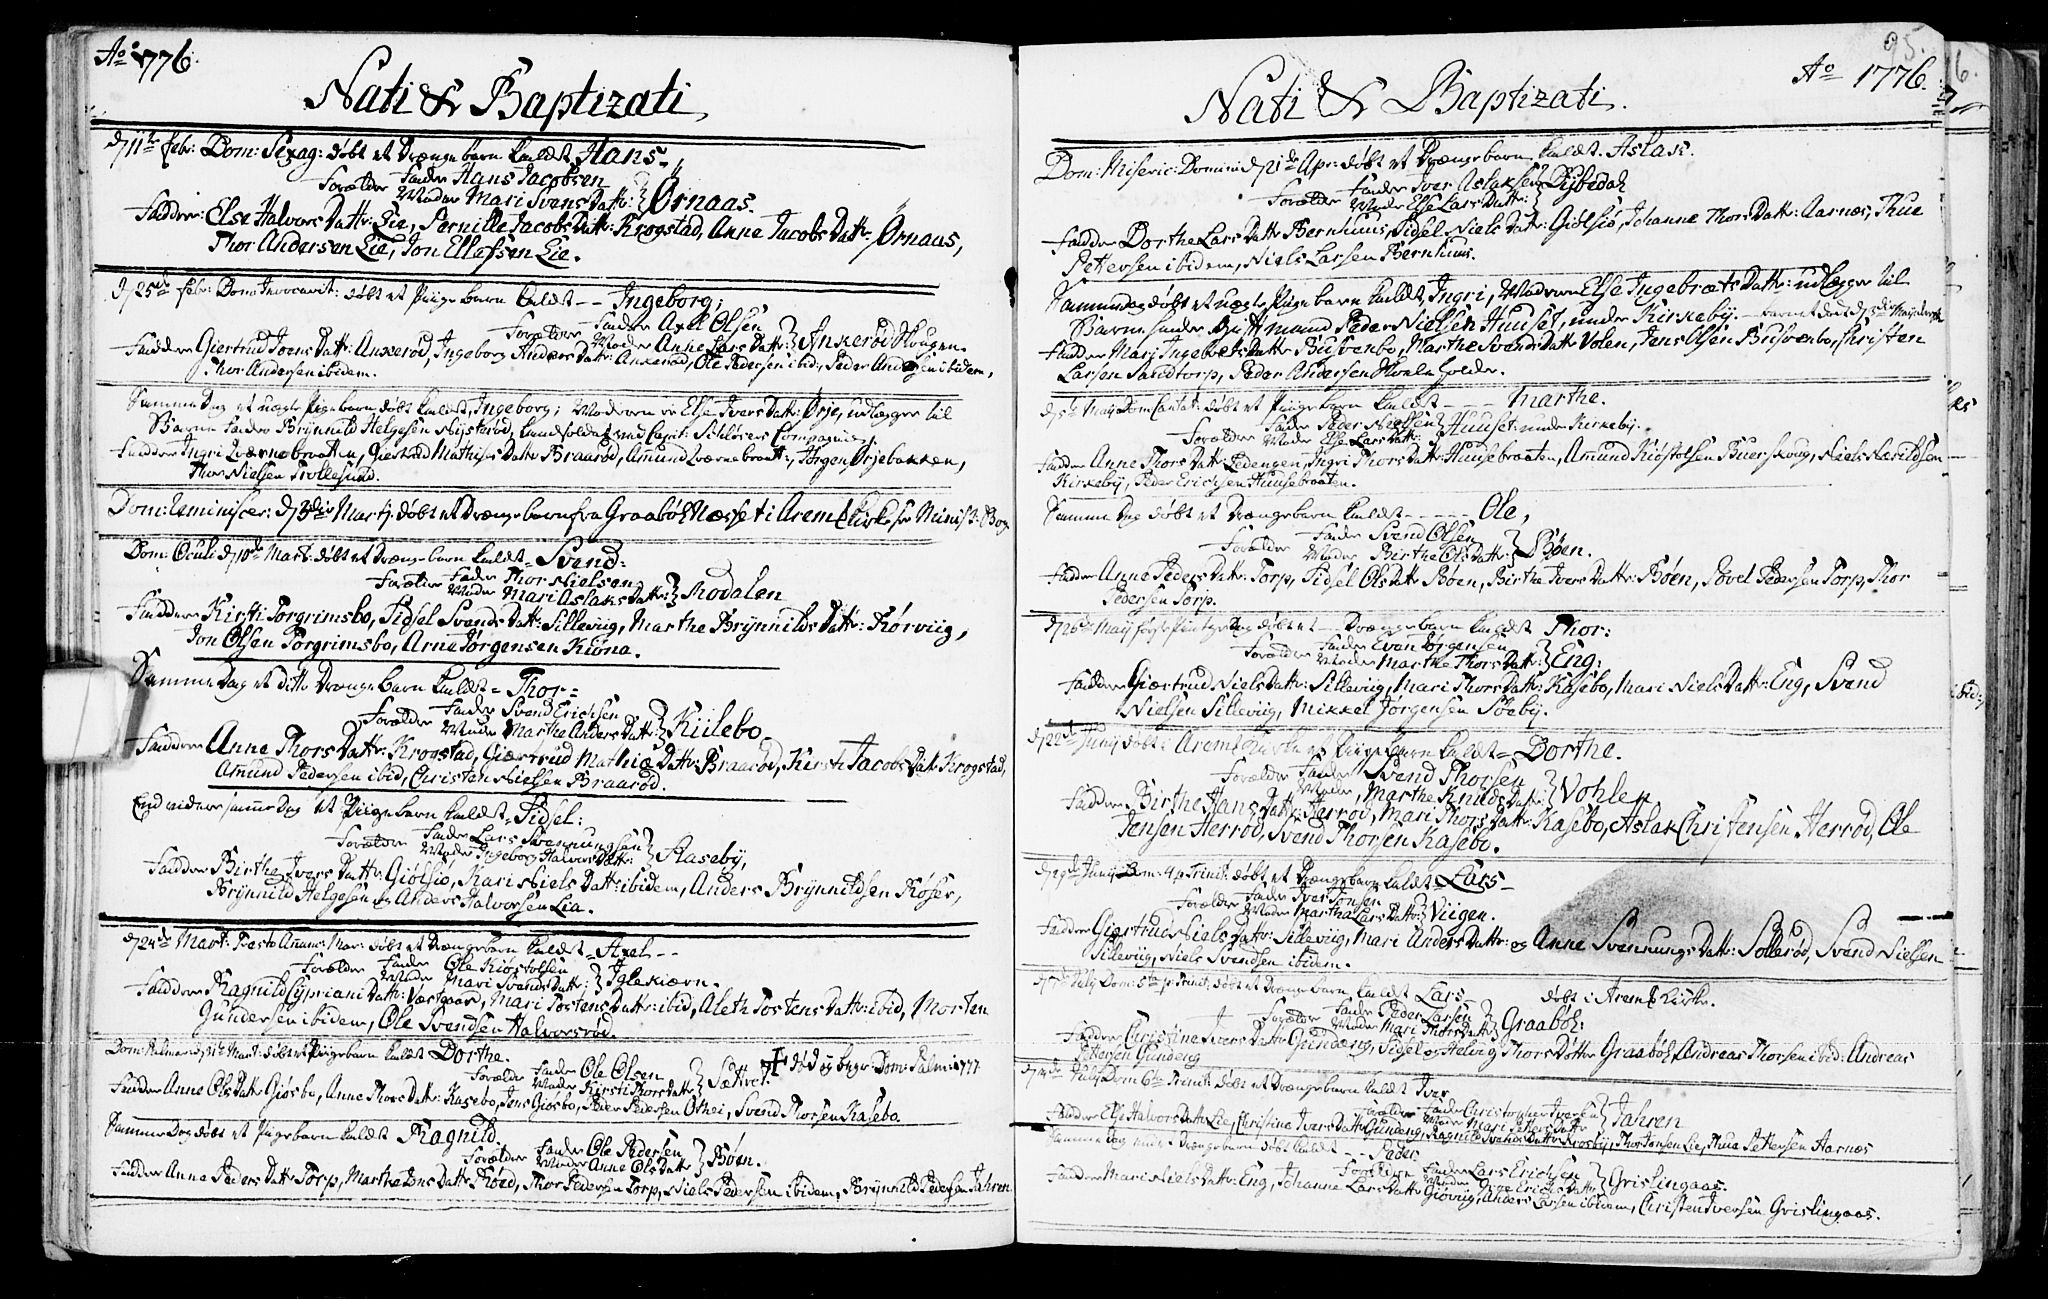 Ao 1776.
Nati & Baptizati
d 11te Febr: Dom: Sexag: døbt et Drængebarn kaldet Hans
Forældr Fader Hans Jacobsen
Moder Mari Svens Dattr: } Ørnaas.
Faddre: Else Halvors Dattr: Lie, Pernille Jacobs Dattr: Krogstad, Anne Jacobs Dattr: Ørnaas,
Thor Andersen Lie, Jon Ellefsen Lie.
d 25de Febr: Dom: Invocavit: døbt et Piigebarn kaldet -- Ingeborg;
Forældre Fader Axel Olsen
Moder Anne Lars Dattr: } Ankerød Skougen
Faddere Giertrud Joens Dattr: Ankerød, Ingeborg Anders Dattr: Ankerød, Ole Pedersen ibid:, Peder Andersen ibidem,
Thor Andersen ibidem.
Samme Dag et uægte Piigebarn døbt kaldet, Ingeborg; Moderen er Else Ivers Dattr: Ørje, udlægger til
Barne Fader Brynnild Helgesen Nysterød, Landsoldat ved Capit: Schlørers Compagnie.
Faddere Ingri Qværnebraaten, Giertrud Mathis Dattr Braarød, Amund Qværnebraat:, Jørgen Ørjebakken,
Thor Nielsen Trollesund.
Dom: Reminiscer: d 3die Martj døbt et Drængebarn fra Graabøl Næsset i Aremk Kirke see Minist: Bog
Dom: Oculi d 10de Mart: døbt et Drængebarn kaldet = Svend:
Forældre Fader Thor Nielsen
Moder Mari Aslaks Dattr: } Modalen
Faddere Kirsti Torgrimsbo, Sidsel Svends Dattr: Silleviig, Marthe Brynnilds Dattr: Rørviig,
Jon Olsen Torgrimsbo, Arne Jørgensen Kiøna.
Samme Dag et ditto Drængebarn kaldet = Thor =
Forældre Fader Svend Erichsen
Moder Marthe Anders Dattr: } Kiilebo
Faddere Anne Thors Dattr: Krogstad, Giærtrud Mathiæ Dattr: Braarød, Kirsti Jacobs Datt Krogstad,
Amund Pedersen ibid, Christen Nielsen Braarød.
End videre samme Dag et Piigebarn kaldet = Sidsel:
Forældre Fader Lars Svennungsen
Moder Ingeborg Halvors Dattr: } Aaseby,
Faddere Birthe Ivers Dattr: Giølsiø, Mari Niels Dattr: ibidem, Anders Brynnildsen Røser,
Brynnild Helgesen og Anders Halvorsen Lia.
d 24de Mart: Festo Annunc: Mar: døbt et Drængebarn kaldet = Axel --
Forældre Fader Ole Kiøstolsen
Moder Mari Svends Dattr: } Iglekiærn.
Faddere Ragnild Cypriani Dattr: Væstgaar, Mari Tostens Dattr: ibid, Aleth Tostens Dattr: ibid, Morten
Gundersen ibidem, Ole Svendsen Halvorsrød.
Dom: Palmar d 31te Mart: døbt et Piigebarn kaldet Dorthe.
Forældre Fader Ole Olsen
Moder Kirsti Thors Dattr } Sættret. ✝ død og begr: Dom: Palm: 1777
Faddere Anne Ols Dattr Giøsbo, Anne Thors Dattr: Kasebo, Jens Giøsbo, Peder Pedersen Othei, Svend Thorsen Kasebo.
Samme Dag døbt et Piigebarn kaldet Ragnild.
Forældre Fader Ole Pedersen
Moder Anne Ols Dattr } Bøen.
Faddere Anne Peders Dattr Torp, Marthe Jens Dattr Røed, Thor Pedersen Torp, Niels Pedersen ibidem, Brynnild Pedersen Jahren
95.
Ao 1776.
Nati & Baptizati.
Dom: Miseric: Domini d 21de Apr: døbt et Drængebarn kaldet Aslak.
Forældre Fader Iver Aslaksen
Moder Else Lars Dattr: }
Faddre Dorthe Lars Dattr Bernhuus, Sidsel Niels Dattr: Giølsiø, Johanne Thors Dattr: Aarnæs, Thue
Pettersen ibidem, Niels Larsen Bernhuus.
Samme Dag døbt et uægte Piigebarn kaldet, Ingri, Moderen Else Ingebrets Dattr: udlægger til
Barne fader Peder Nielsen Huuset, under Kirkeby. --
Faddre Mari Ingebrets Dattr Busvenbo, Marthe Svends Dattr Volen, Jens Olsen Busvenbo, Christen
Larsen Sandtorp, Peder Andersen
d 5te Maij Dom: Cantat: døbt et Piigebarn kaldet --- Marthe.
Forældre Fader Peder Nielsen
Moder Else Lars Dattr: } Huuset: under Kirkeby.
Faddre Anne Thors Dattr: Ledengen, Ingri Thors Dattr: Huusebraaten, Amund Kiøstolsen Buerskoug, Niels Næridsen
Kirkeby, Peder Erichsen Huusebraaten.
Samme Dag døbt et Drængebarn kaldet ----- Ole,
Forældre Fader Svend Olsen
Moder Birthe Ols Dattr: } Bøen.
Faddre Anne Peders Dattr: Torp, Sidsel Ols Dattr Bøen, Birthe Ivers Dattr: Bøen, Povel Pedersen Torp, Thor
Pedersen Torp.
d 26de Maij første Pintze Dag døbt et -- Drængebarn kaldet Thor:
Forældre Fader Even Jørgensen
Moder Marthe Thors Dattr: } Eng:
Faddre Giærtrud Niels Dattr: Silleviig, Mari Thors Dattr: Kasebo, Mari Niels Dattr: Eng, Svend
Nielsen Silleviig, Mikkel Jørgensen Søeby.
d 22de Junij døbt i Aremk Kirke et Piigebarn kaldet = Dorthe.
Forældre Fader Svend Thorsen
Moder, Marthe Knuds Dattr: } Vohlen
Faddre Birthe Hans Dattr: Herrød, Mari Thors Dattr: Kasebo, Aslak Christensen Herrød, Ole
Jensen Herrød, Svend Thorsen Kasebo.
d 29de Junij Dom: 4 p Trinit: døbt et Drængebarn kaldet = Lars --
Forældre Fader Iver Jonsen
Moder Martha Lars Dattr: } Viigen.
Faddre Giertrud Niels Dattr: Silleviig, Mari Anders Dattr: og Anne Svennungs Dattr: Sollerød, Svend Nielsen
Silleviig, Niels Svendsen ibidem.
d 7de Julij Dom: 5te p: Trinit: døbt et Drængebarn kaldet Lars -- døbt i Aremk Kirke.
Forældre Fader Peder Larsen
Moder Mari Thors Dattr } Graabøl:
Faddre Christine Ivers Dattr Gundeng, Sidsel og Helvig Thors Døttre Graabøl, Andreas Thorsen ibid: Andreas
Pettersen Gundeng
d 14de Julij Dom: 6te Trinit: døbt et Drængebarn kaldet Iver
Forældre Fader Christopher Iversen
Moder Mari Petters Dattr } Jahren
Faddre Else Halvors Dattr Lie, Christine Ivers Dattr Gundeng, Ragnild Svends Dattr Krosby, Thor Jonsen Lie, Thue Pettersen Aarnæs
Samme Dag endnu et Drængebarn døbt kaldet -- Peder
Forældre Fader Lars Erichsen
Moder Grøe Erichs Dattr } Grislingaas.
Faddere Mari Niels Dattr: Eng, Johanne Lars Dattr Giøviig, Anders Larsen ibidem, Christen Iversen Grislingaas.